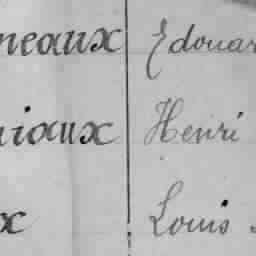 neaux Edouar
iaux Henri
x Louis